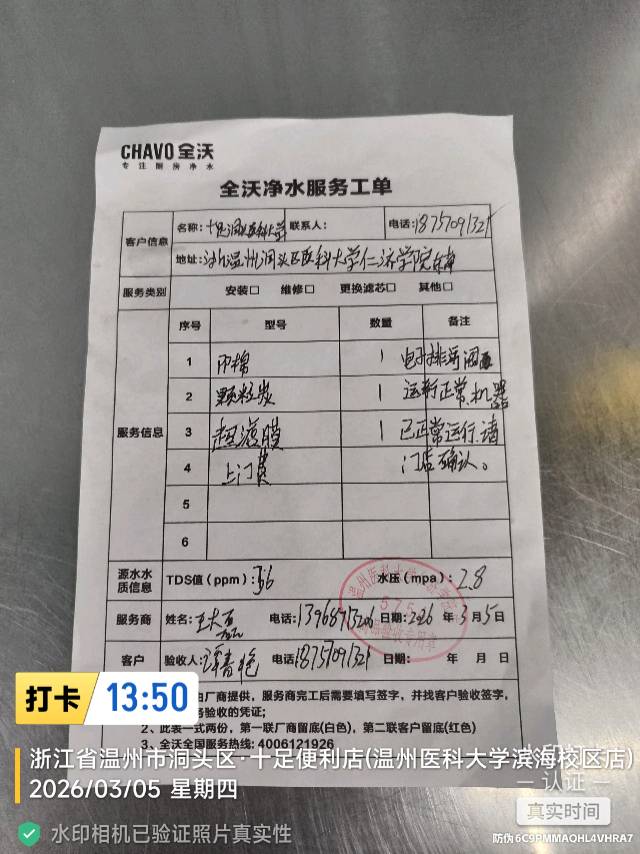 CHAVO 全沃
专注厨房净水
全沃净水服务工单
客户信息
名称:十足洞头医科大学 联系人: 电话:18757091321
地址:浙江温州洞头区医科大学仁济学院
服务类别 安装□ 维修□ 更换滤芯□ 其他□
服务信息
序号 型号 数量 备注
1 PP棉 1 电子排污阀
2 颗粒炭 1 运行正常.机器
3 超滤膜 1 已正常运行.请
4 上门费 门店确认。
5
6
源水水质信息 TDS值(ppm):36 水压(mpa):2.8
服务商 姓名: 电话: 日期:2026 年 3 月 5 日
客户 验收人: 电话18757091321 日期: 年 月 日
由厂商提供,服务商完工后需要填写签字,并找客户验收签字,
验收的凭证;
2、此表一式两份,第一联厂商留底(白色),第二联客户留底(红色)
3、全沃全国服务热线:4006121926
打卡 13:50
浙江省温州市洞头区·十足便利店(温州医科大学滨海校区店)
2026/03/05 星期四
水印相机已验证照片真实性
认证
真实时间
防伪 6C9PMMAOHL4VHRA7